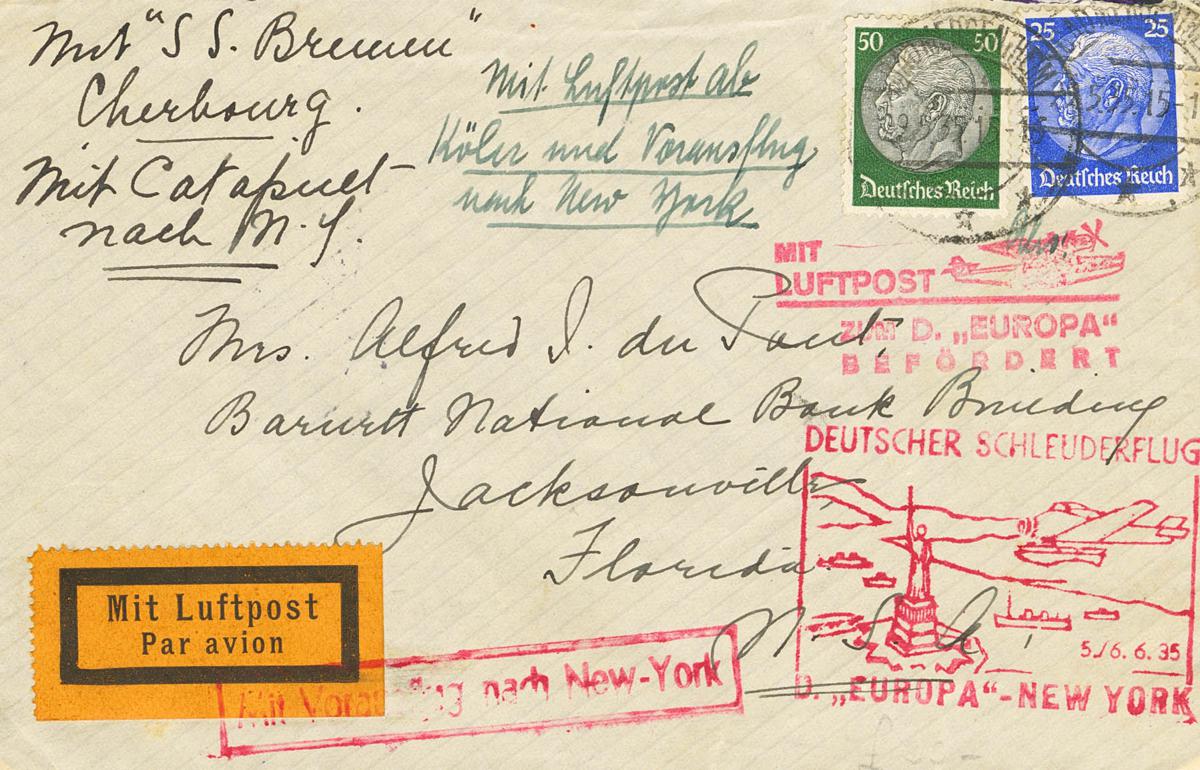 Mit "S S. Bremen"
Cherbourg.
Mit Catapult
nach N.Y.
Mit Luftpost ab
Köln und Vorausflug
nach New York
50 50
Deutsches Reich
25 25
Deutsches Reich
MIT
LUFTPOST
ZUM D. „EUROPA“
BEFÖRDERT
Mrs. Alfred I. du Pont,
Barnett National Bank Building
Jacksonville
Florida.
U.S.A.
DEUTSCHER SCHLEUDERFLUG
5./6. 6. 35
D. „EUROPA“-NEW YORK
Mit Luftpost
Par avion
Mit nach New-York